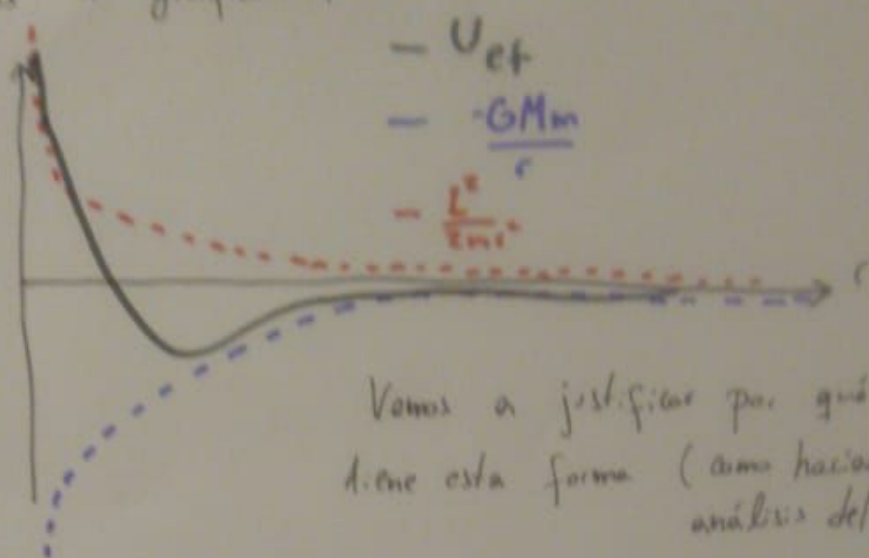 — U ef
— -GMm
r
— L²
2mr²
r
Vamos a justificar por qué
tiene esta forma (como hacía
análisis del